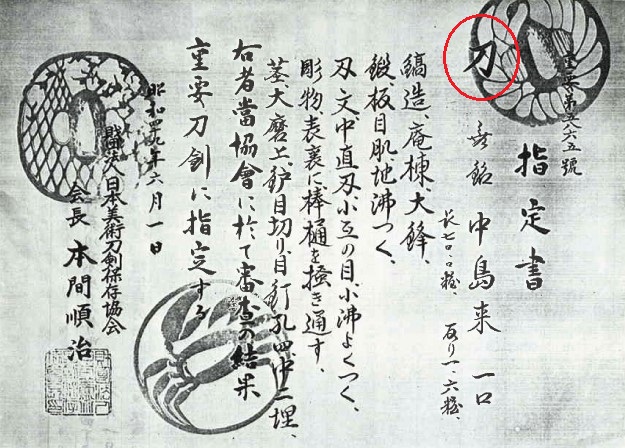 指定書
刀 無銘 中島来 一口
長七〇、〇糎、反り一、六糎、
鎬造、庵棟、大鋒、
鍛板目肌、地沸つく、
刃文、中直刃小互の目、小沸よくつく、
彫物表裏に棒樋を掻き通す、
茎、大磨上、鑢目切り、目釘孔四、中二埋、
右者當協會に於て審査の結果
重要刀剣に指定する
昭和四九年六月一日
財団法人日本美術刀剣保存協会
会長 本間順治